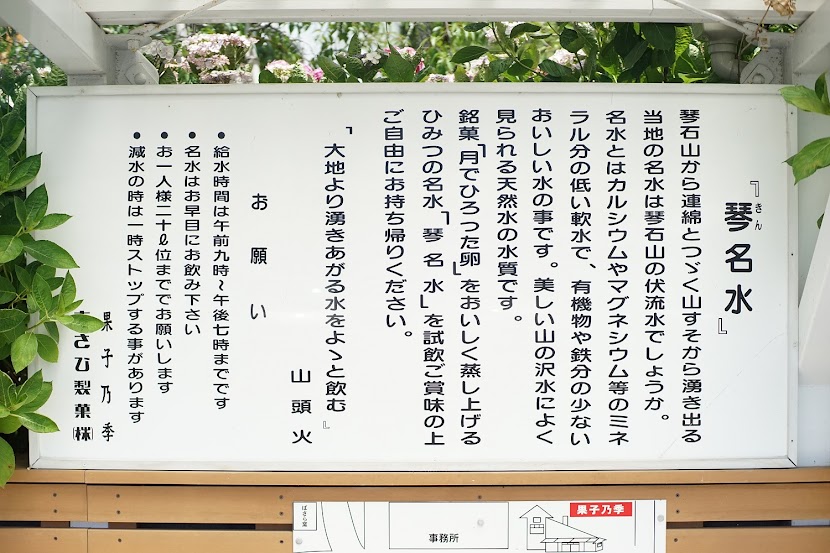 『琴名水』
きん
琴石山から連綿とつゞく山すそから湧き出る
当地の名水は琴石山の伏流水でしょうか。
名水とはカルシウムやマグネシウム等のミネ
ラル分の低い軟水で、有機物や鉄分の少ない
おいしい水の事です。美しい山の沢水によく
見られる天然水の水質です。
銘菓「月でひろつた卵」をおいしく蒸し上げる
ひみつの名水「琴名水」を試飲ご賞味の上
ご自由にお持ち帰りください。
「大地より湧きあがる水をよゝと飲む』
山頭火
お願い
●給水時間は午前九時～午後七時までです
●名水はお早目にお飲み下さい
●お一人様二十ℓ位まででお願いします
●減水の時は一時ストップする事があります
果子乃季
さひ製菓㈱
ばさら窯
事務所
果子乃季